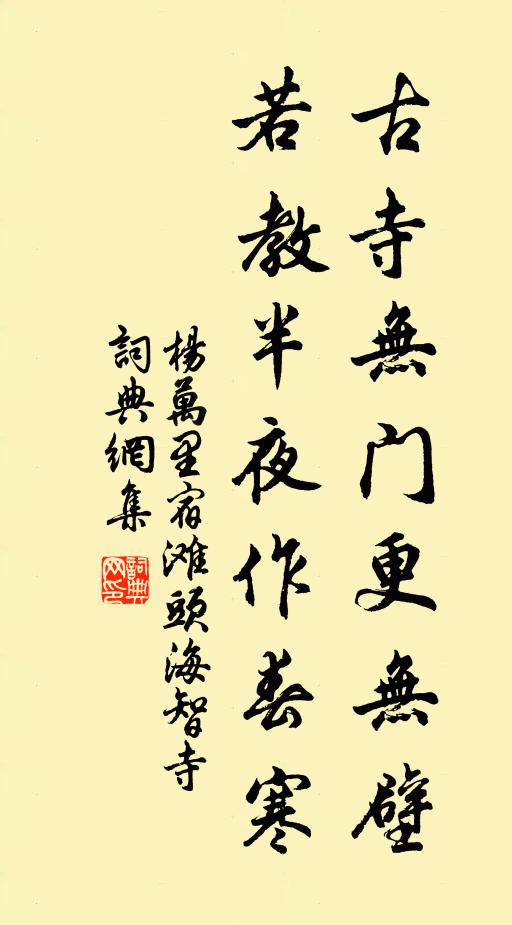 古寺無門更無壁
若教半夜作春寒
楊萬里宿滩頭海智寺
詞典網集
詞典网印